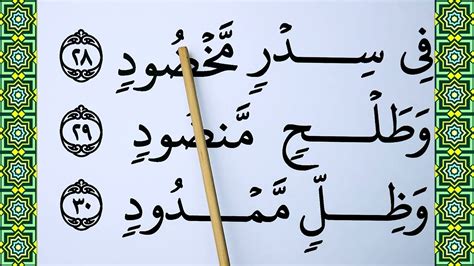 فِي سِدْرٍ مَّخْضُودٍ ٢٨
وَطَلْحٍ مَّنضُودٍ ٢٩
وَظِلٍّ مَّمْدُودٍ ٣٠